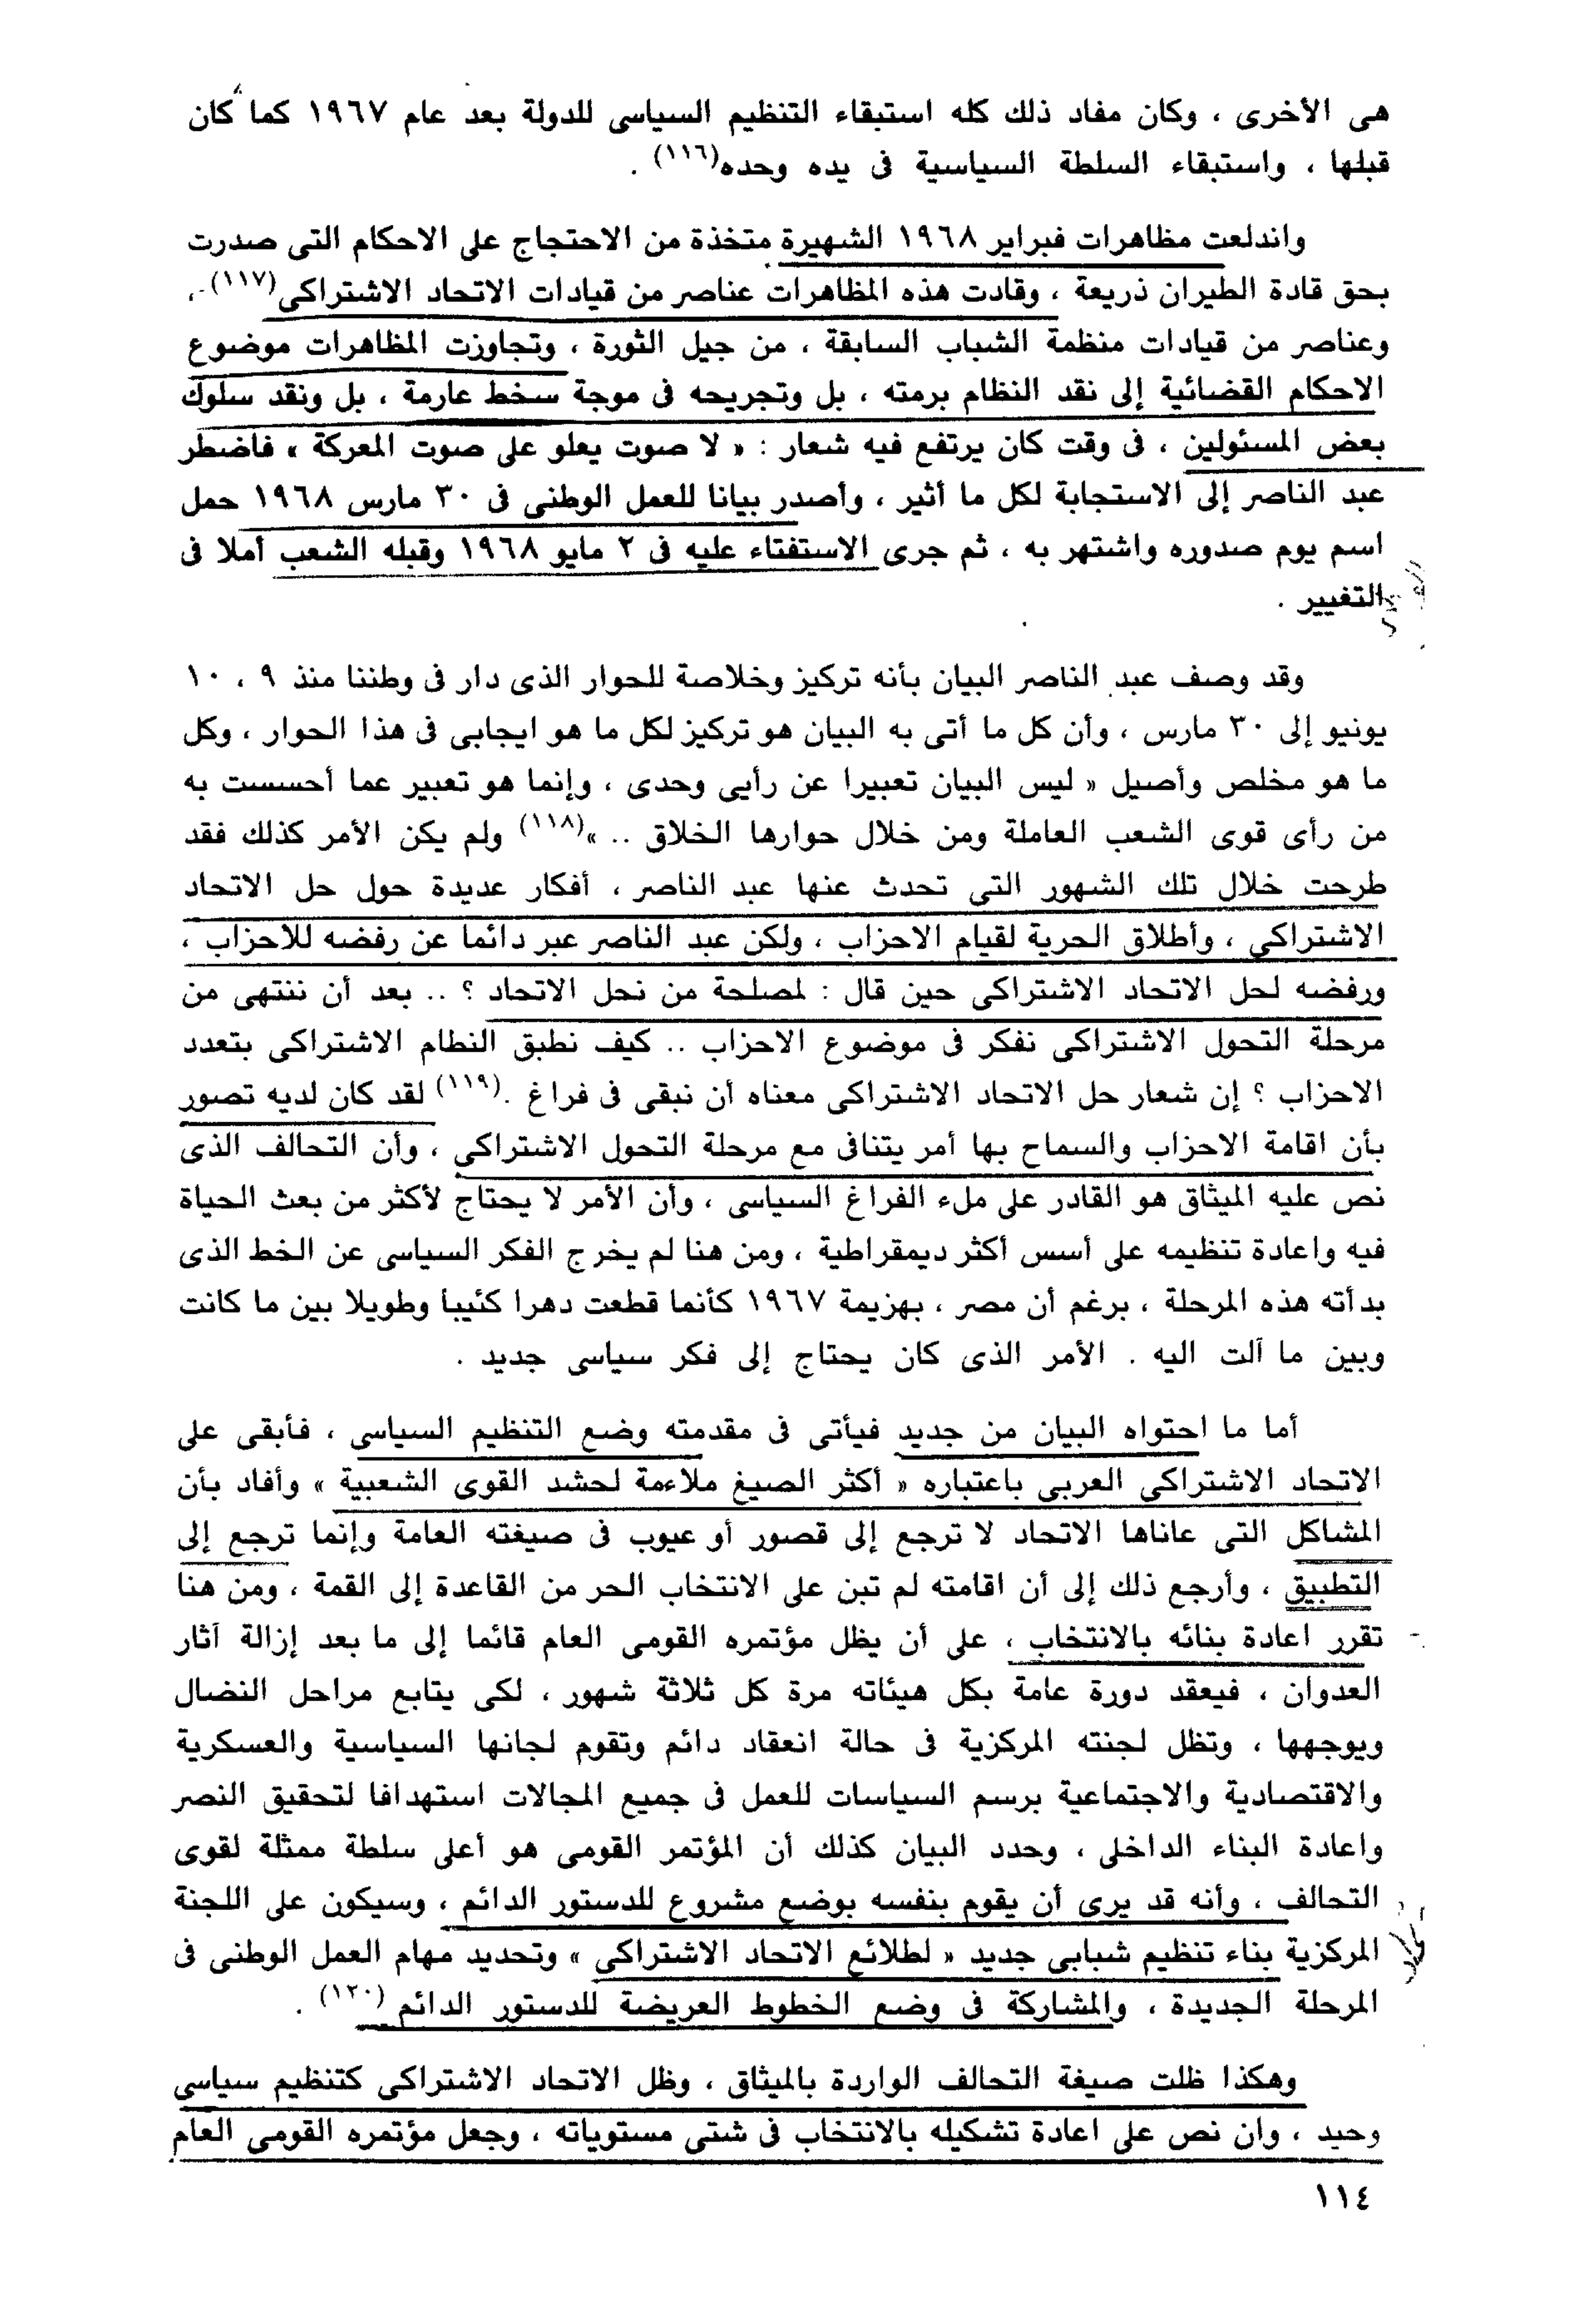 هى الأخرى ، وكان مفاد ذلك كله استبقاء التنظيم السياسى للدولة بعد عام ١٩٦٧ كما كان
قبلها ، واستبقاء السلطة السياسية فى يده وحده(١١٦) .
واندلعت مظاهرات فبراير ١٩٦٨ الشهيرة متخذة من الاحتجاج على الاحكام التى صدرت
بحق قادة الطيران ذريعة ، وقادت هذه المظاهرات عناصر من قيادات الاتحاد الاشتراكى(١١٧) ،
وعناصر من قيادات منظمة الشباب السابقة ، من جيل الثورة ، وتجاوزت المظاهرات موضوع
الاحكام القضائية إلى نقد النظام برمته ، بل وتجريحه فى موجة سخط عارمة ، بل ونقد سلوك
بعض المسئولين ، فى وقت كان يرتفع فيه شعار : « لا صوت يعلو على صوت المعركة » فاضطر
عبد الناصر إلى الاستجابة لكل ما أثير ، وأصدر بيانا للعمل الوطنى فى ٣٠ مارس ١٩٦٨ حمل
اسم يوم صدوره واشتهر به ، ثم جرى الاستفتاء عليه فى ٢ مايو ١٩٦٨ وقبله الشعب أملا فى
التغيير .
وقد وصف عبد الناصر البيان بأنه تركيز وخلاصة للحوار الذى دار فى وطننا منذ ٩ ، ١٠
يونيو إلى ٣٠ مارس ، وأن كل ما أتى به البيان هو تركيز لكل ما هو ايجابى فى هذا الحوار ، وكل
ما هو مخلص وأصيل « ليس البيان تعبيرا عن رأيى وحدى ، وإنما هو تعبير عما أحسست به
من رأى قوى الشعب العاملة ومن خلال حوارها الخلاق .. »(١١٨) ولم يكن الأمر كذلك فقد
طرحت خلال تلك الشهور التى تحدث عنها عبد الناصر ، أفكار عديدة حول حل الاتحاد
الاشتراكى ، وأطلاق الحرية لقيام الاحزاب ، ولكن عبد الناصر عبر دائما عن رفضه للاحزاب ،
ورفضه لحل الاتحاد الاشتراكى حين قال : لمصلحة من نحل الاتحاد ؟ .. بعد أن ننتهى من
مرحلة التحول الاشتراكى نفكر فى موضوع الاحزاب .. كيف نطبق النطام الاشتراكى بتعدد
الاحزاب ؟ إن شعار حل الاتحاد الاشتراكى معناه أن نبقى فى فراغ .(١١٩) لقد كان لديه تصور
بأن اقامة الاحزاب والسماح بها أمر يتنافى مع مرحلة التحول الاشتراكى ، وأن التحالف الذى
نص عليه الميثاق هو القادر على ملء الفراغ السياسى ، وأن الأمر لا يحتاج لأكثر من بعث الحياة
فيه واعادة تنظيمه على أسس أكثر ديمقراطية ، ومن هنا لم يخرج الفكر السياسى عن الخط الذى
بدأته هذه المرحلة ، برغم أن مصر ، بهزيمة ١٩٦٧ كأنما قطعت دهرا كئيبا وطويلا بين ما كانت
وبين ما آلت اليه . الأمر الذى كان يحتاج إلى فكر سياسى جديد .
أما ما احتواه البيان من جديد فيأتى فى مقدمته وضع التنظيم السياسى ، فأبقى على
الاتحاد الاشتراكى العربى باعتباره « أكثر الصيغ ملاءمة لحشد القوى الشعبية » وأفاد بأن
المشاكل التى عاناها الاتحاد لا ترجع إلى قصور أو عيوب فى صيغته العامة وإنما ترجع إلى
التطبيق ، وأرجع ذلك إلى أن اقامته لم تبن على الانتخاب الحر من القاعدة إلى القمة ، ومن هنا
تقرر اعادة بنائه بالانتخاب ، على أن يظل مؤتمره القومى العام قائما إلى ما بعد إزالة آثار
العدوان ، فيعقد دورة عامة بكل هيئاته مرة كل ثلاثة شهور ، لكى يتابع مراحل النضال
ويوجهها ، وتظل لجنته المركزية فى حالة انعقاد دائم وتقوم لجانها السياسية والعسكرية
والاقتصادية والاجتماعية برسم السياسات للعمل فى جميع المجالات استهدافا لتحقيق النصر
واعادة البناء الداخلى ، وحدد البيان كذلك أن المؤتمر القومى هو أعلى سلطة ممثلة لقوى
التحالف ، وأنه قد يرى أن يقوم بنفسه بوضع مشروع للدستور الدائم ، وسيكون على اللجنة
المركزية بناء تنظيم شبابى جديد « لطلائع الاتحاد الاشتراكى » وتحديد مهام العمل الوطنى فى
المرحلة الجديدة ، والمشاركة فى وضع الخطوط العريضة للدستور الدائم (١٢٠) .
وهكذا ظلت صيغة التحالف الواردة بالميثاق ، وظل الاتحاد الاشتراكى كتنظيم سياسى
وحيد ، وان نص على اعادة تشكيله بالانتخاب فى شتى مستوياته ، وجعل مؤتمره القومى العام
١١٤